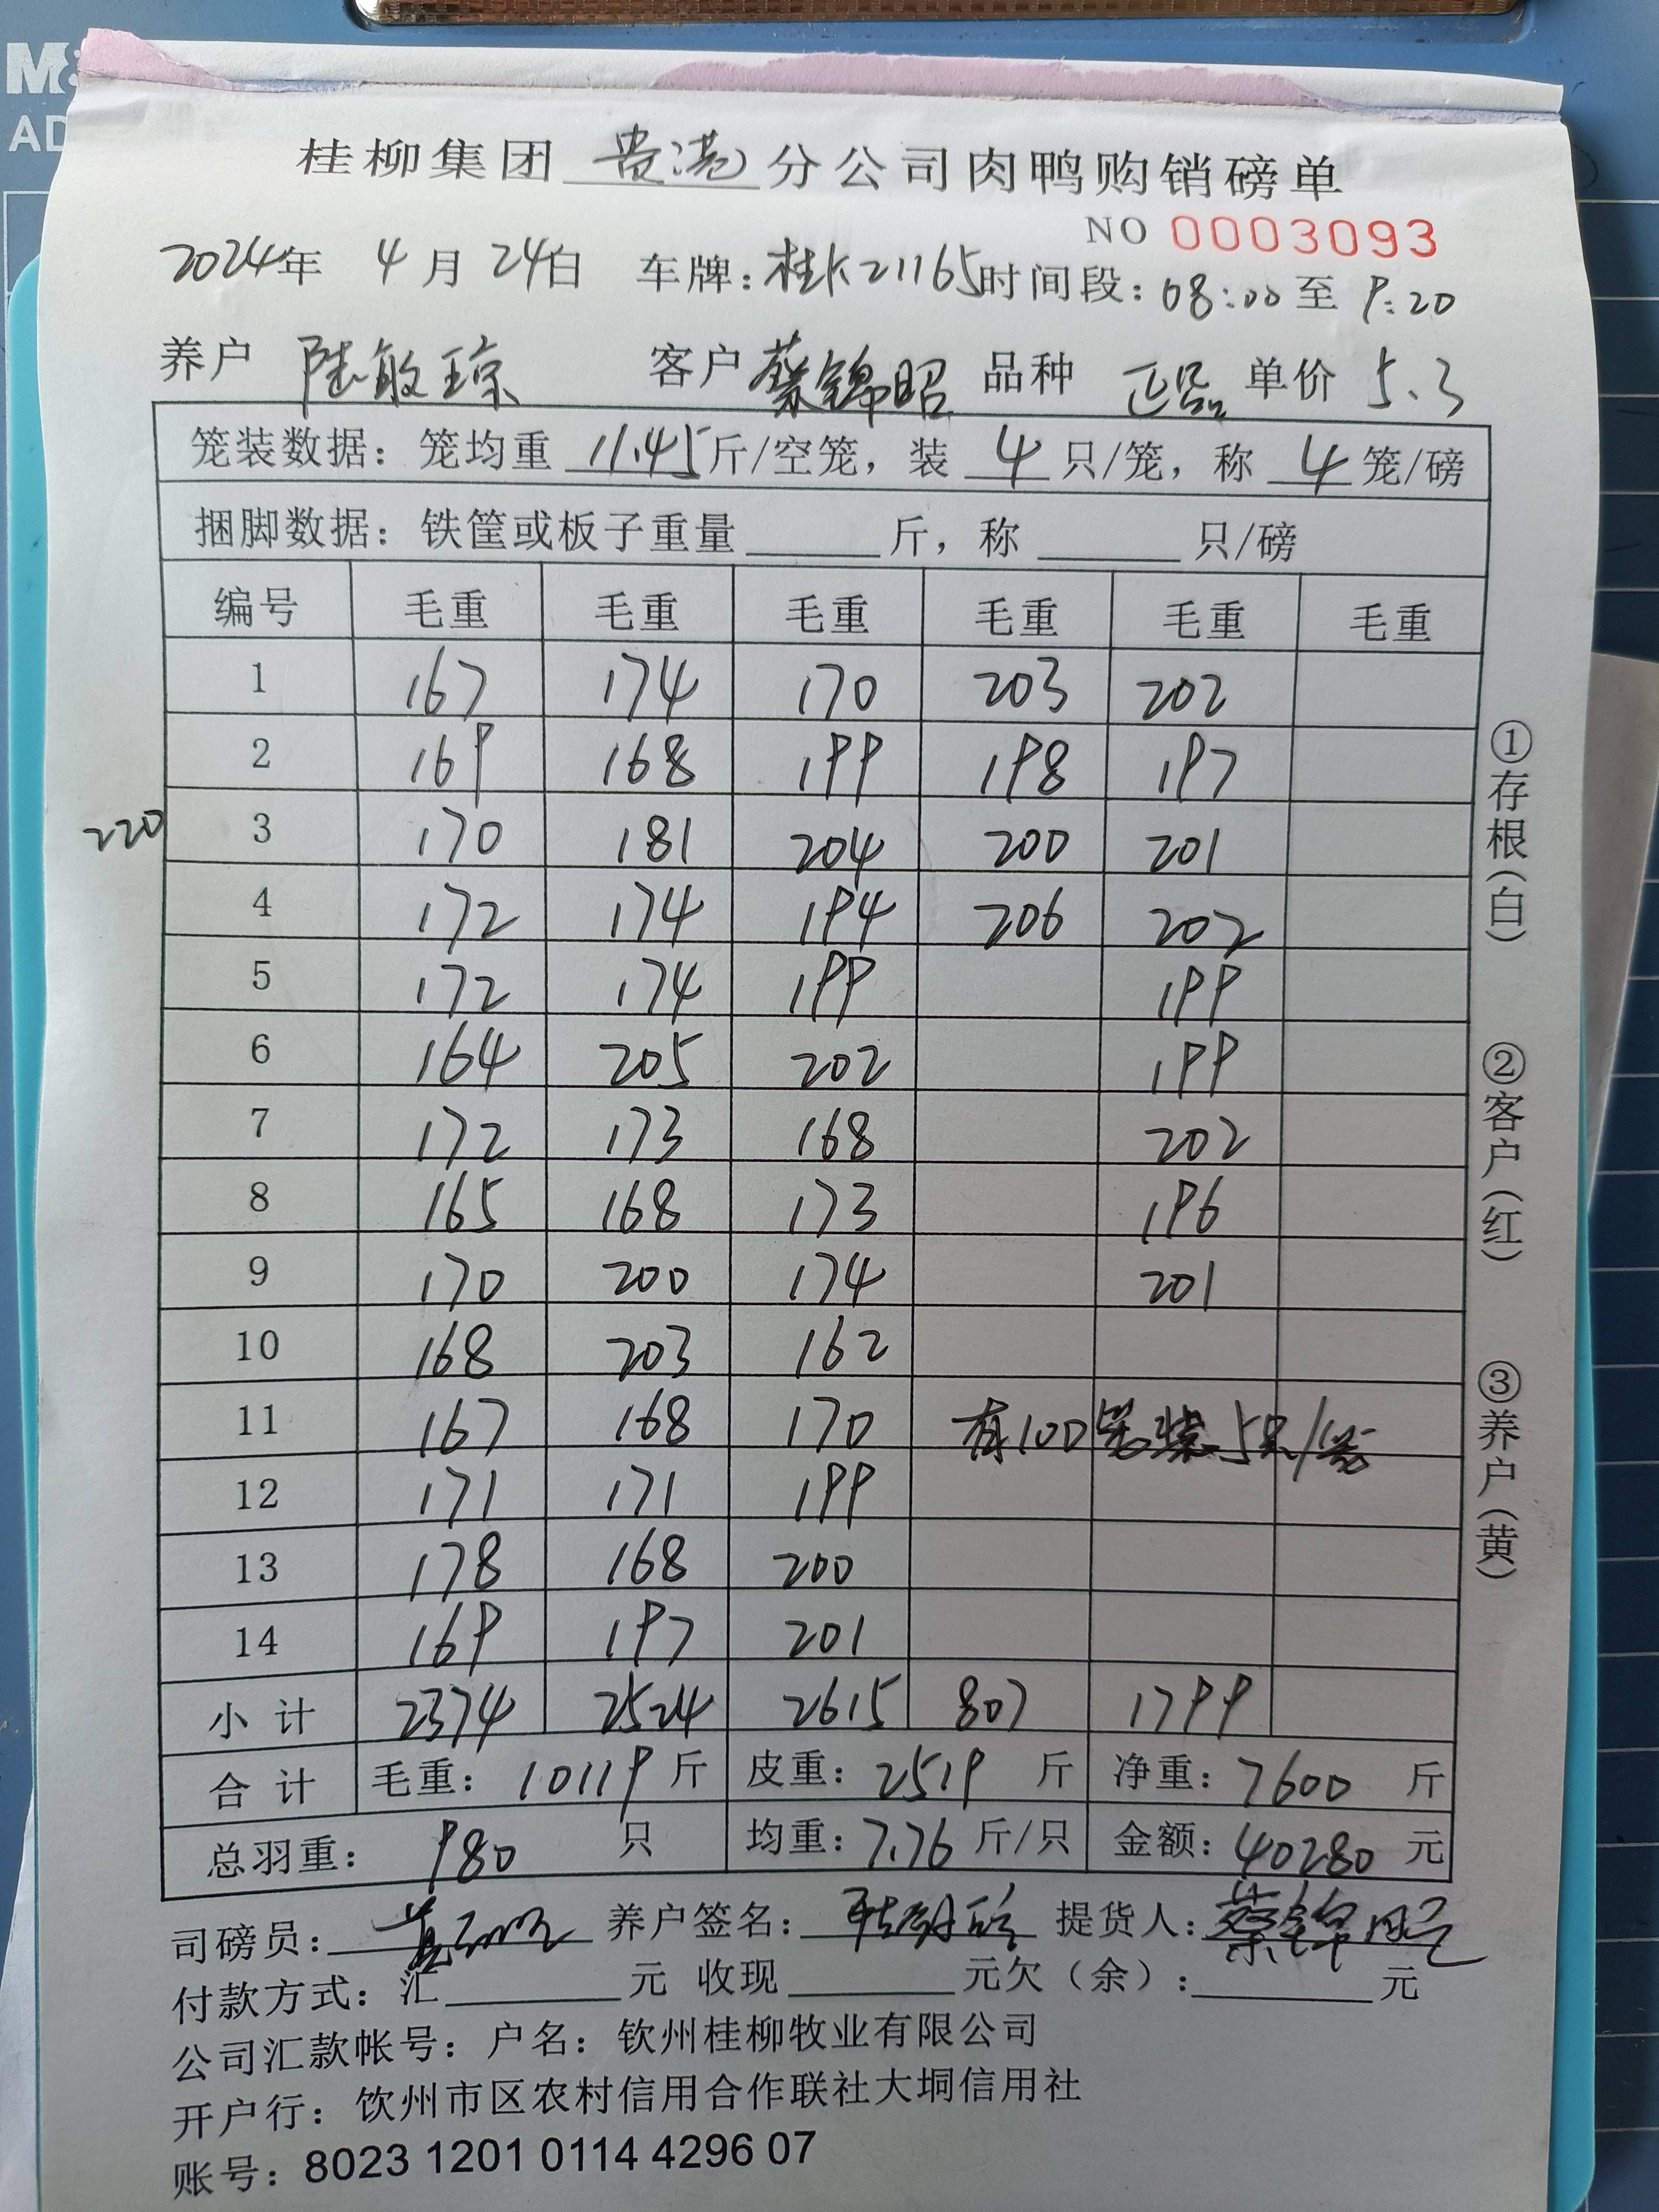 M
AD
桂柳集团 贵港 分公司肉鸭购销磅单
NO 0003093
2024年 4月 24日 车牌:桂K21165 时间段:08:00至9:20
养户 陆敏琼 客户 蔡锦昭 品种 正品 单价 5.3
笼装数据:笼均重 11.45 斤/空笼,装 4 只/笼,称 4 笼/磅
捆脚数据:铁筐或板子重量______斤,称______只/磅
编号 毛重 毛重 毛重 毛重 毛重 毛重
1 167 174 170 203 202
2 169 168 199 198 197
220 3 170 181 204 200 201
4 172 174 194 206 202
5 172 174 199 199
6 164 205 202 199
7 172 173 168 202
8 165 168 173 196
9 170 200 174 201
10 168 203 162
11 167 168 170 有100笼装5只/笼
12 171 171 199
13 178 168 200
14 169 197 201
小计 2374 2524 2615 807 1799
合计 毛重:10119斤 皮重:2519斤 净重:7600斤
总羽重:980只 均重:7.76斤/只 金额:40280元
司磅员: 养户签名: 提货人:蔡锦昭
付款方式:汇______元 收现______元欠(余):______元
公司汇款帐号:户名:钦州桂柳牧业有限公司
开户行:钦州市区农村信用合作联社大垌信用社
账号:8023 1201 0114 4296 07
①存根(白) ②客户(红) ③养户(黄)